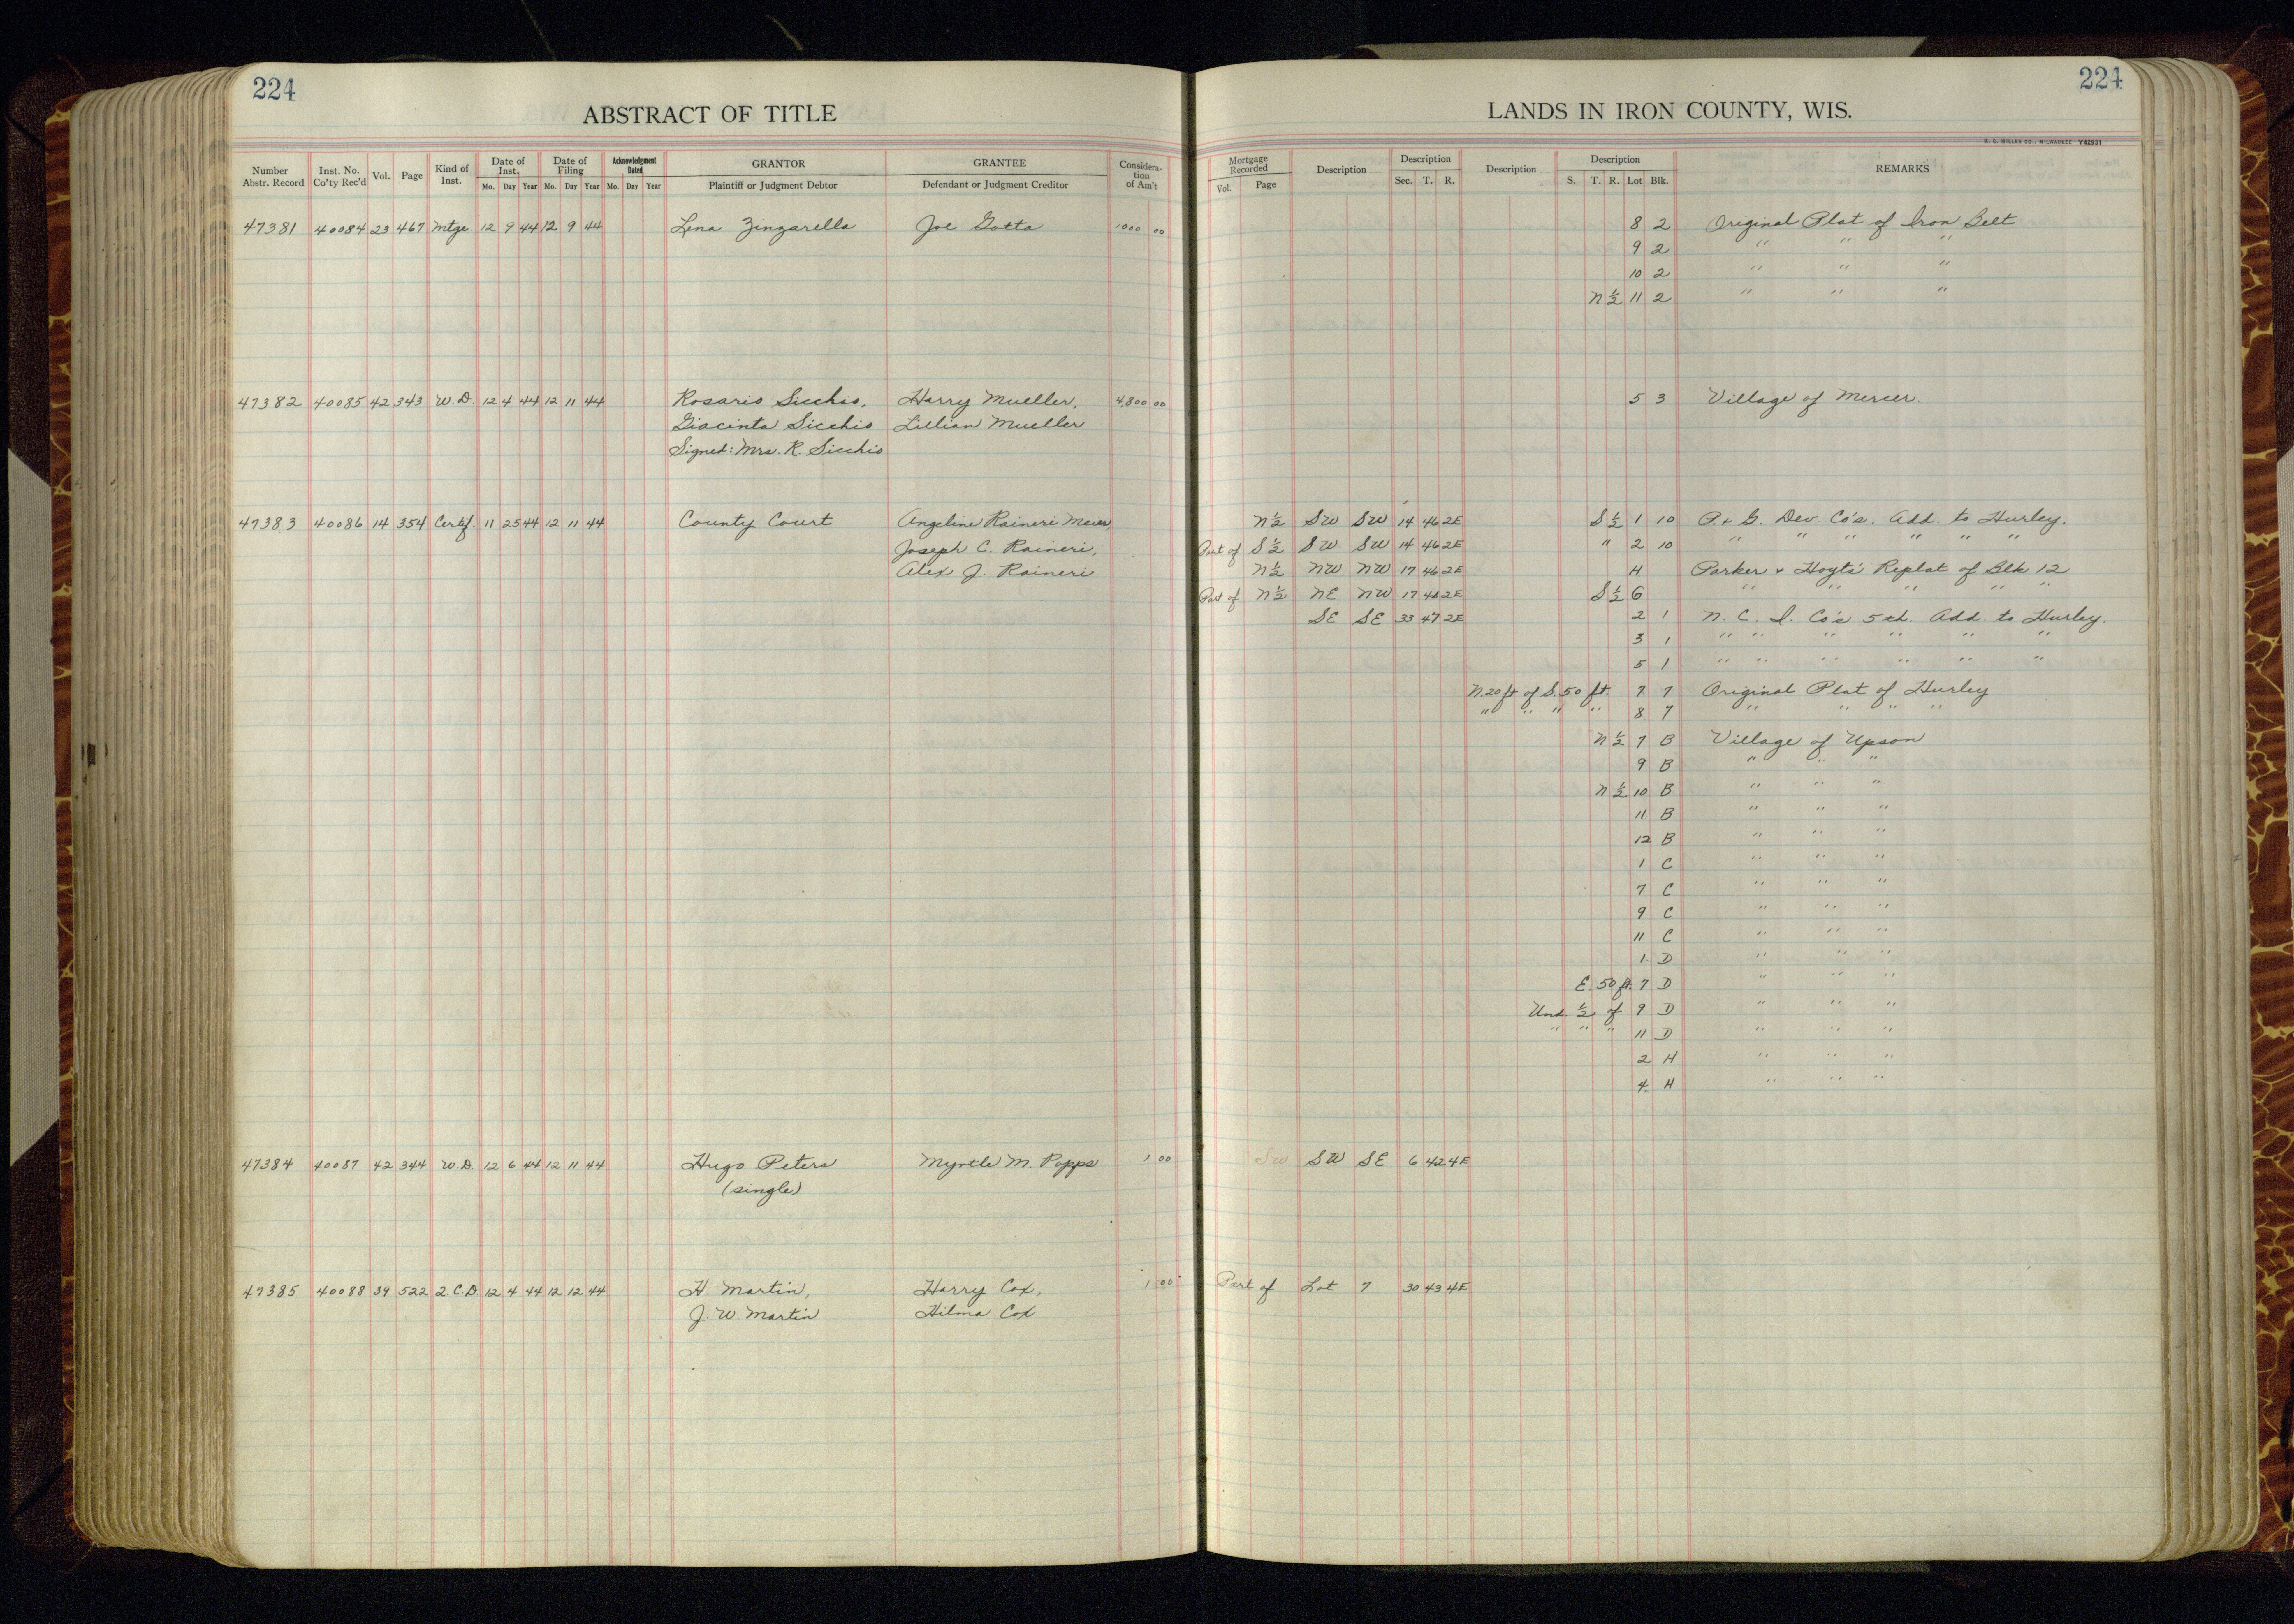 224
224
ABSTRACT OF TITLE
LANDS IN IRON COUNTY, WIS.
Number Abstr. Record | Inst. No. Co'ty Rec'd | Vol. | Page | Kind of Inst. | Date of Inst. Mo. Day Year | Date of Filing Mo. Day Year | Acknowledgment Dated Mo. Day Year | GRANTOR Plaintiff or Judgment Debtor | GRANTEE Defendant or Judgment Creditor | Considera- tion of Am't | Mortgage Recorded Vol. Page | Description | Description Sec. T. R. | Description | Description S. T. R. Lot Blk. | REMARKS
47381 40084 23 467 Mtge 12 9 44 12 9 44 Lena Zingarella Joe Gotta 1000 00 8 2 Original Plat of Iron Belt
9 2 " " "
10 2 " " "
N ½ 11 2 " " "
47382 40085 42 343 W.D. 12 4 44 12 11 44 Rosario Sicchio, Harry Mueller, 4,800 00 5 3 Village of Mercer.
Giacinta Sicchio Lillian Mueller
Signed: Mrs. R. Sicchio
47383 40086 14 354 Certif. 11 25 44 12 11 44 County Court Angeline Raineri Meier, N½ SW SW 14 46 2E S ½ 1 10 P. & G. Dev. Co's. Add. to Hurley.
Joseph C. Raineri, Part of S½ SW SW 14 46 2E " 2 10 " " " " " "
Alex J. Raineri N½ NW NW 17 46 2E H Parker & Hoyts' Replat of Blk 12
Part of N½ NE NW 17 46 2E S ½ 6 " " " " "
SE SE 33 47 2E 2 1 N. C. I. Co's 5th. Add. to Hurley.
3 1 " " " " " "
5 1 " " " " " "
N. 20 ft of S. 50 ft. 7 7 Original Plat of Hurley
" " " " 8 7 " " " "
N ½ 7 B Village of Upson
9 B " " "
N ½ 10 B " " "
11 B " " "
12 B " " "
1 C " " "
7 C " " "
9 C " " "
11 C " " "
1 D " " "
E. 50 ft. 7 D " " "
Und. ½ of 9 D " " "
" " " 11 D " " "
2 H " " "
4 H " " "
47384 40087 42 344 W.D. 12 6 44 12 11 44 Hugo Peters Myrtle M. Popps 1 00 SW SW SE 6 42 4E
(single)
47385 40088 39 522 2.C.D. 12 4 44 12 12 44 H. Martin, Harry Cox, 1 00 Part of Lot 7 30 43 4E
J. W. Martin Hilma Cox
H. C. MILLER CO., MILWAUKEE Y42931